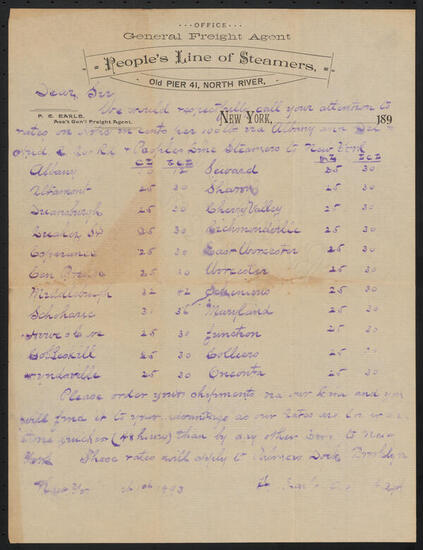 OFFICE
General Freight Agent
People's Line of Steamers,
Old PIER 41, NORTH RIVER,
P. C. EARLE,
Ass't Gen'l Freight Agent.
NEW YORK, 189
Dear Sir
We would respectfully call your attention to
rates on in cents per 100 lbs via Albany and
R Rd & Peoples Line Steamers to New York
Albany 12 Seward 25 30
Altamont 25 30 Sharon 25 30
Duanesburgh 25 30 Cherry Valley 25 30
25 30 Richmondville 25 30
Esperance 25 30 East Worcester 25 30
Cen Bridge 25 30 Worcester 25 30
Middleburgh 32 42 Schenevus 25 30
Schoharie 30 36 Maryland 25 30
Howes Cave 25 30 Junction 25 30
Cobleskill 25 30 Colliers 25 30
Hyndsville 25 30 Oneonta 25 30
Please order your shipments via our Line and you
will find it to your advantage as our rates are
time quicker (48 hours) than by any other Line to New
York These rates will apply to Dock Brooklyn
New Yor 1893